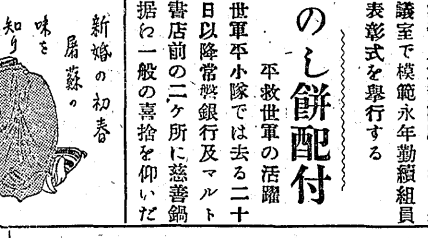 議室で模範永年勤續組員
表彰式を舉行する
のし餅配付
平救世軍の活躍
世軍平小隊では去る二十
日以降常磐銀行及マルト
書店前の二ケ所に慈善鍋
据ゐ一般の喜捨を仰いだ
新婚の初春
屠蘇の
味を
知り